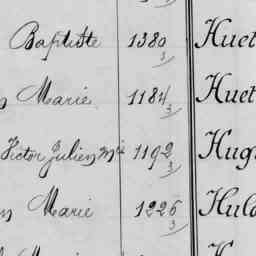 Baptiste 1380 3 Huet
Marie 1184 3 Huet
Victor Julien Mie 1192 3 Hug
Marie 1226 3 Hul